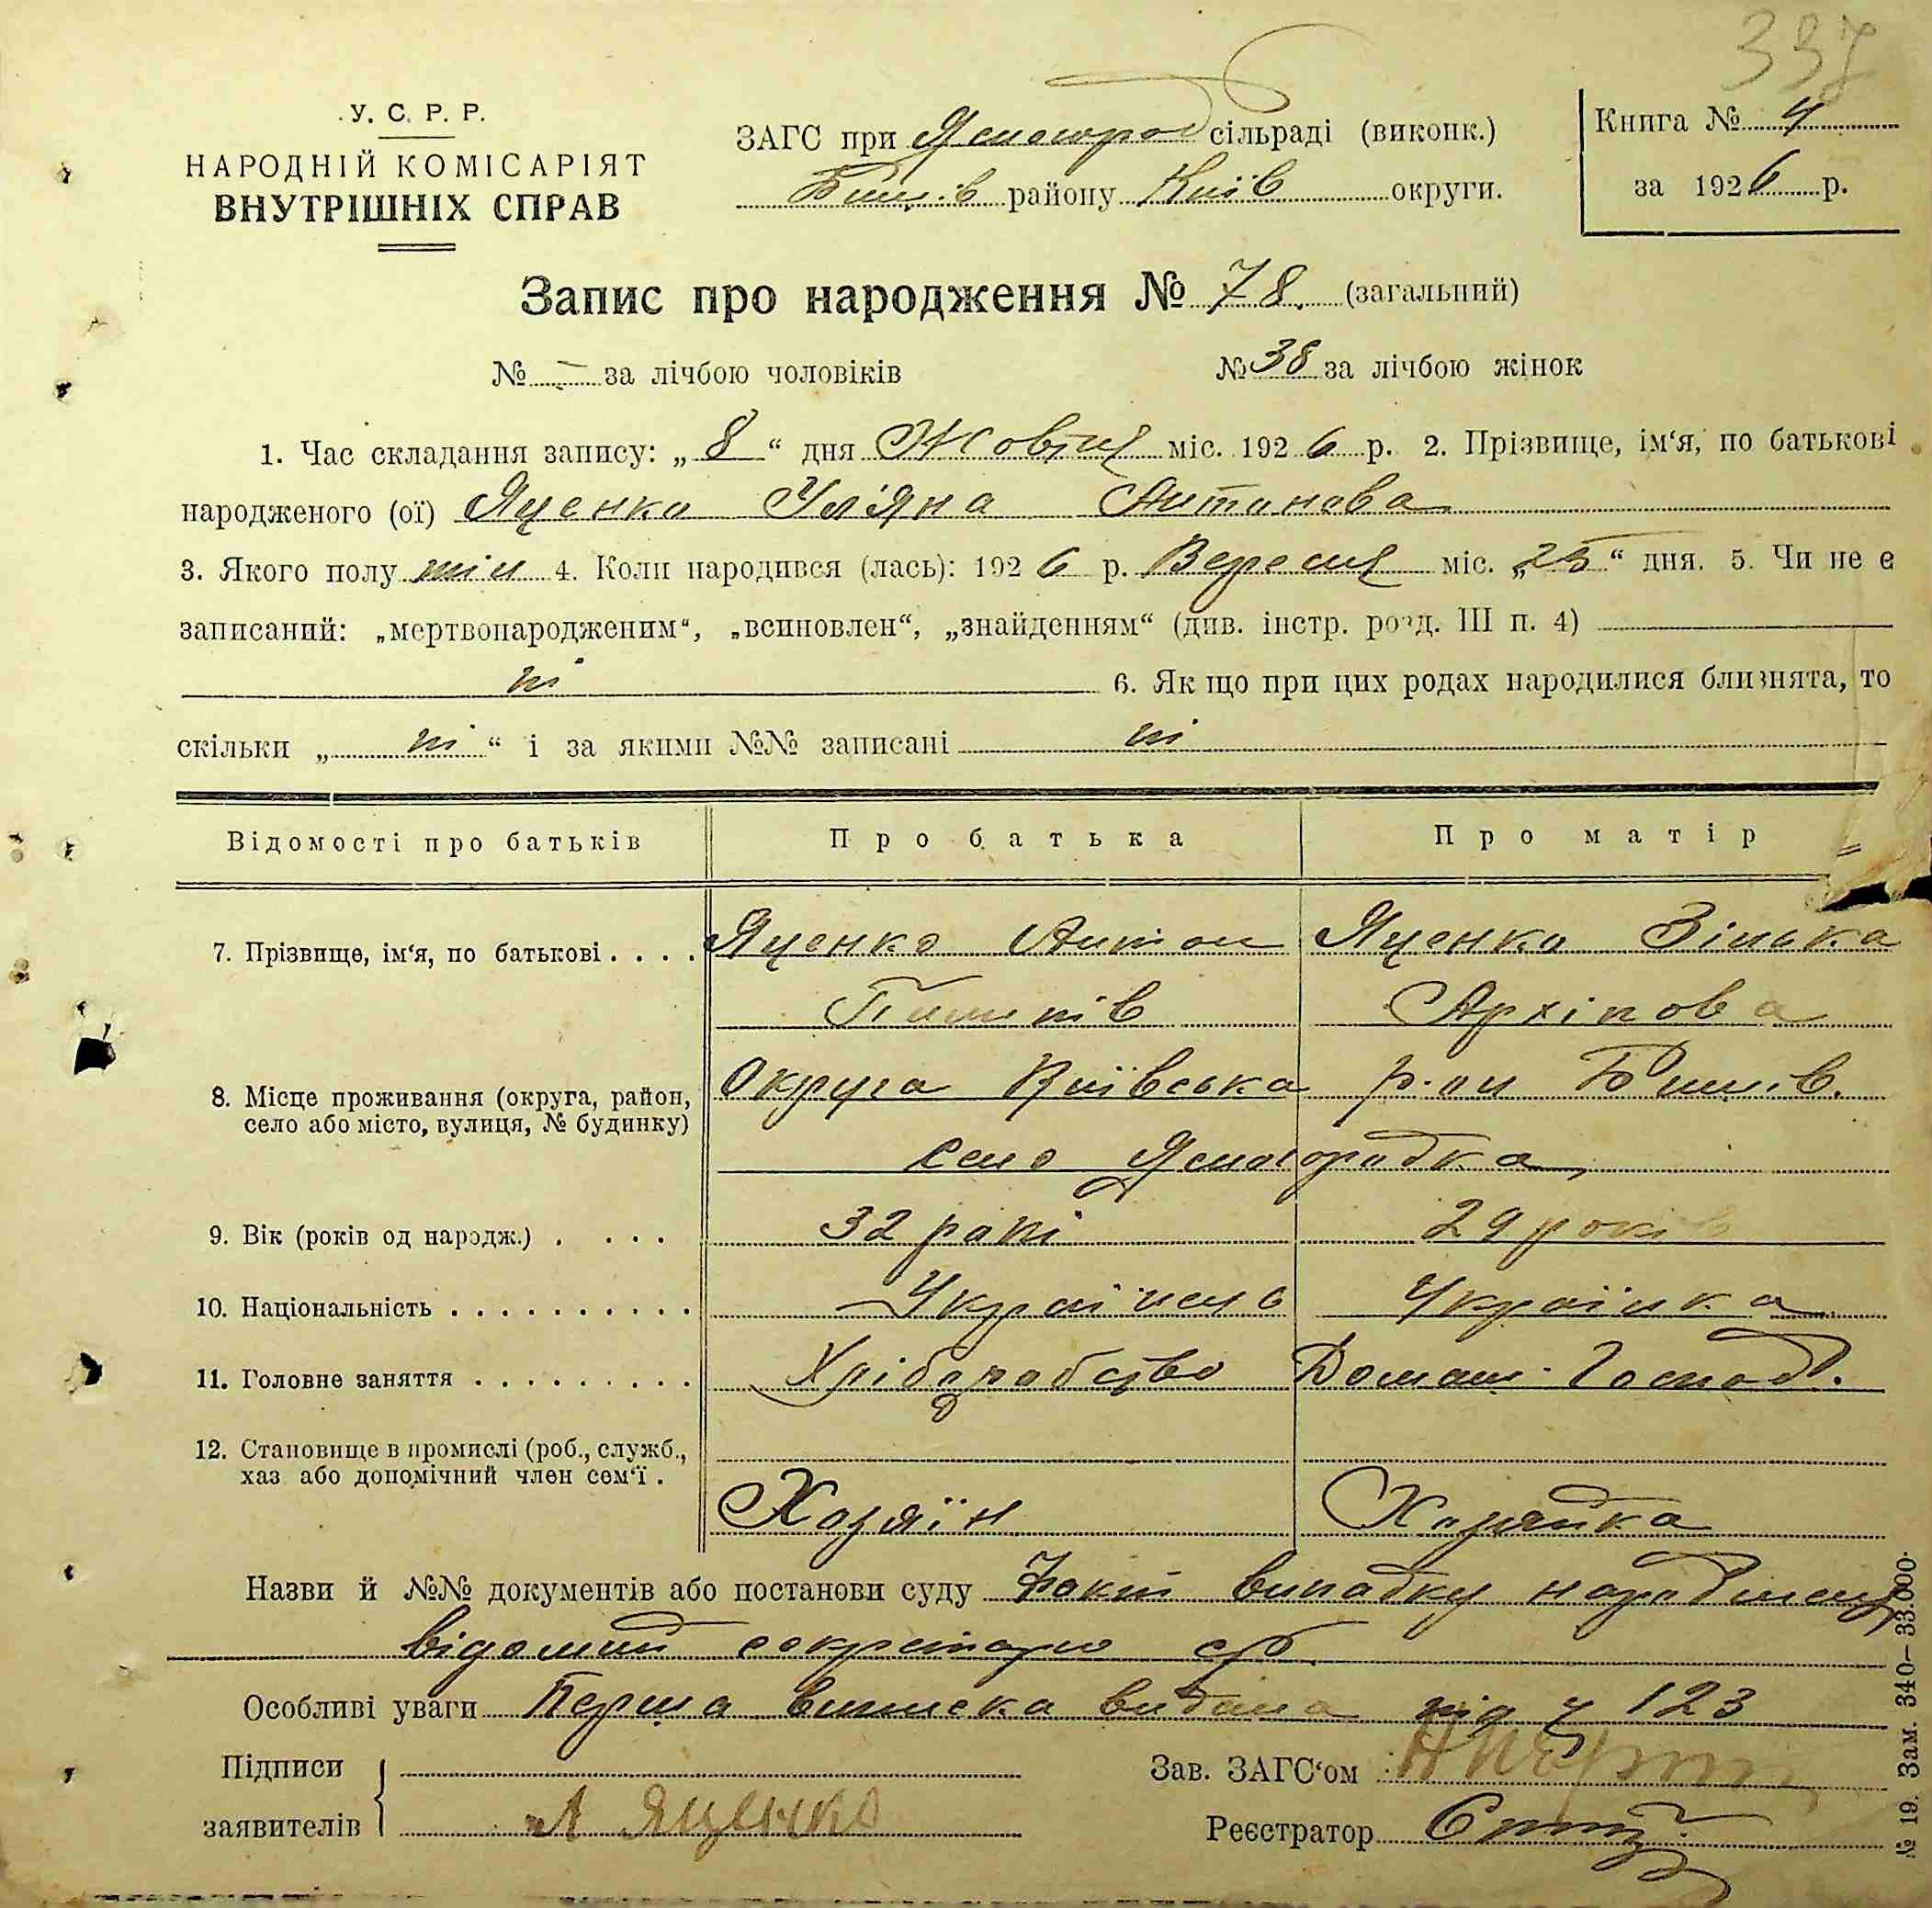 337
У. С. Р. Р.
НАРОДНІЙ КОМІСАРІЯТ
ВНУТРІШНІХ СПРАВ
ЗАГС при Ясногород сільраді (виконк.)
Бишів району Київ округи.
Книга № 4
за 1926 р.
Запис про народження № 78. (загальний)
№ - за лічбою чоловіків № 38 за лічбою жінок
1. Час складання запису: „8“ дня Жовтня міс. 1926 р. 2. Прізвище, ім‘я, по батькові
народженого (ої) Яценко Уляна Антонова
3. Якого полу жін 4. Коли народився (лась): 1926 р. Вересня міс. „25“ дня. 5. Чи не є
записаний: „мертвонародженим“, „всиновлен“, „знайденням“ (див. інстр. розд. III п. 4)
ні 6. Якщо при цих родах народилися близнята, то
скільки „ні“ і за якими №№ записані ні
Відомості про батьків Про батька Про матір
7. Прізвище, ім‘я, по батькові . . . . Яценко Антон Яценко Зінька
Архіпова
8. Місце проживання (округа, район, село або місто, вулиця, № будинку) Округа Київська р-он Бишів.
село Ясногородка
9. Вік (років од народж.) . . . . 32 рокі 29 років
10. Національність . . . . . . . . . . Українець Українка
11. Головне заняття . . . . . . . . . Хліборобство Домаш. Господ.
12. Становище в промислі (роб., служб.,
хаз або допомічний член сем‘ї . Хозяїн Хозяйка
Назви й №№ документів або постанови суду Факт випадку народження
відомий секретарю с/р.
Особливі уваги Перша виписка видана під ч 123
Підписи
заявителів А Яценко
Зав. ЗАГС‘ом
Реєстратор
№ 19. Зам. 340—33.000.